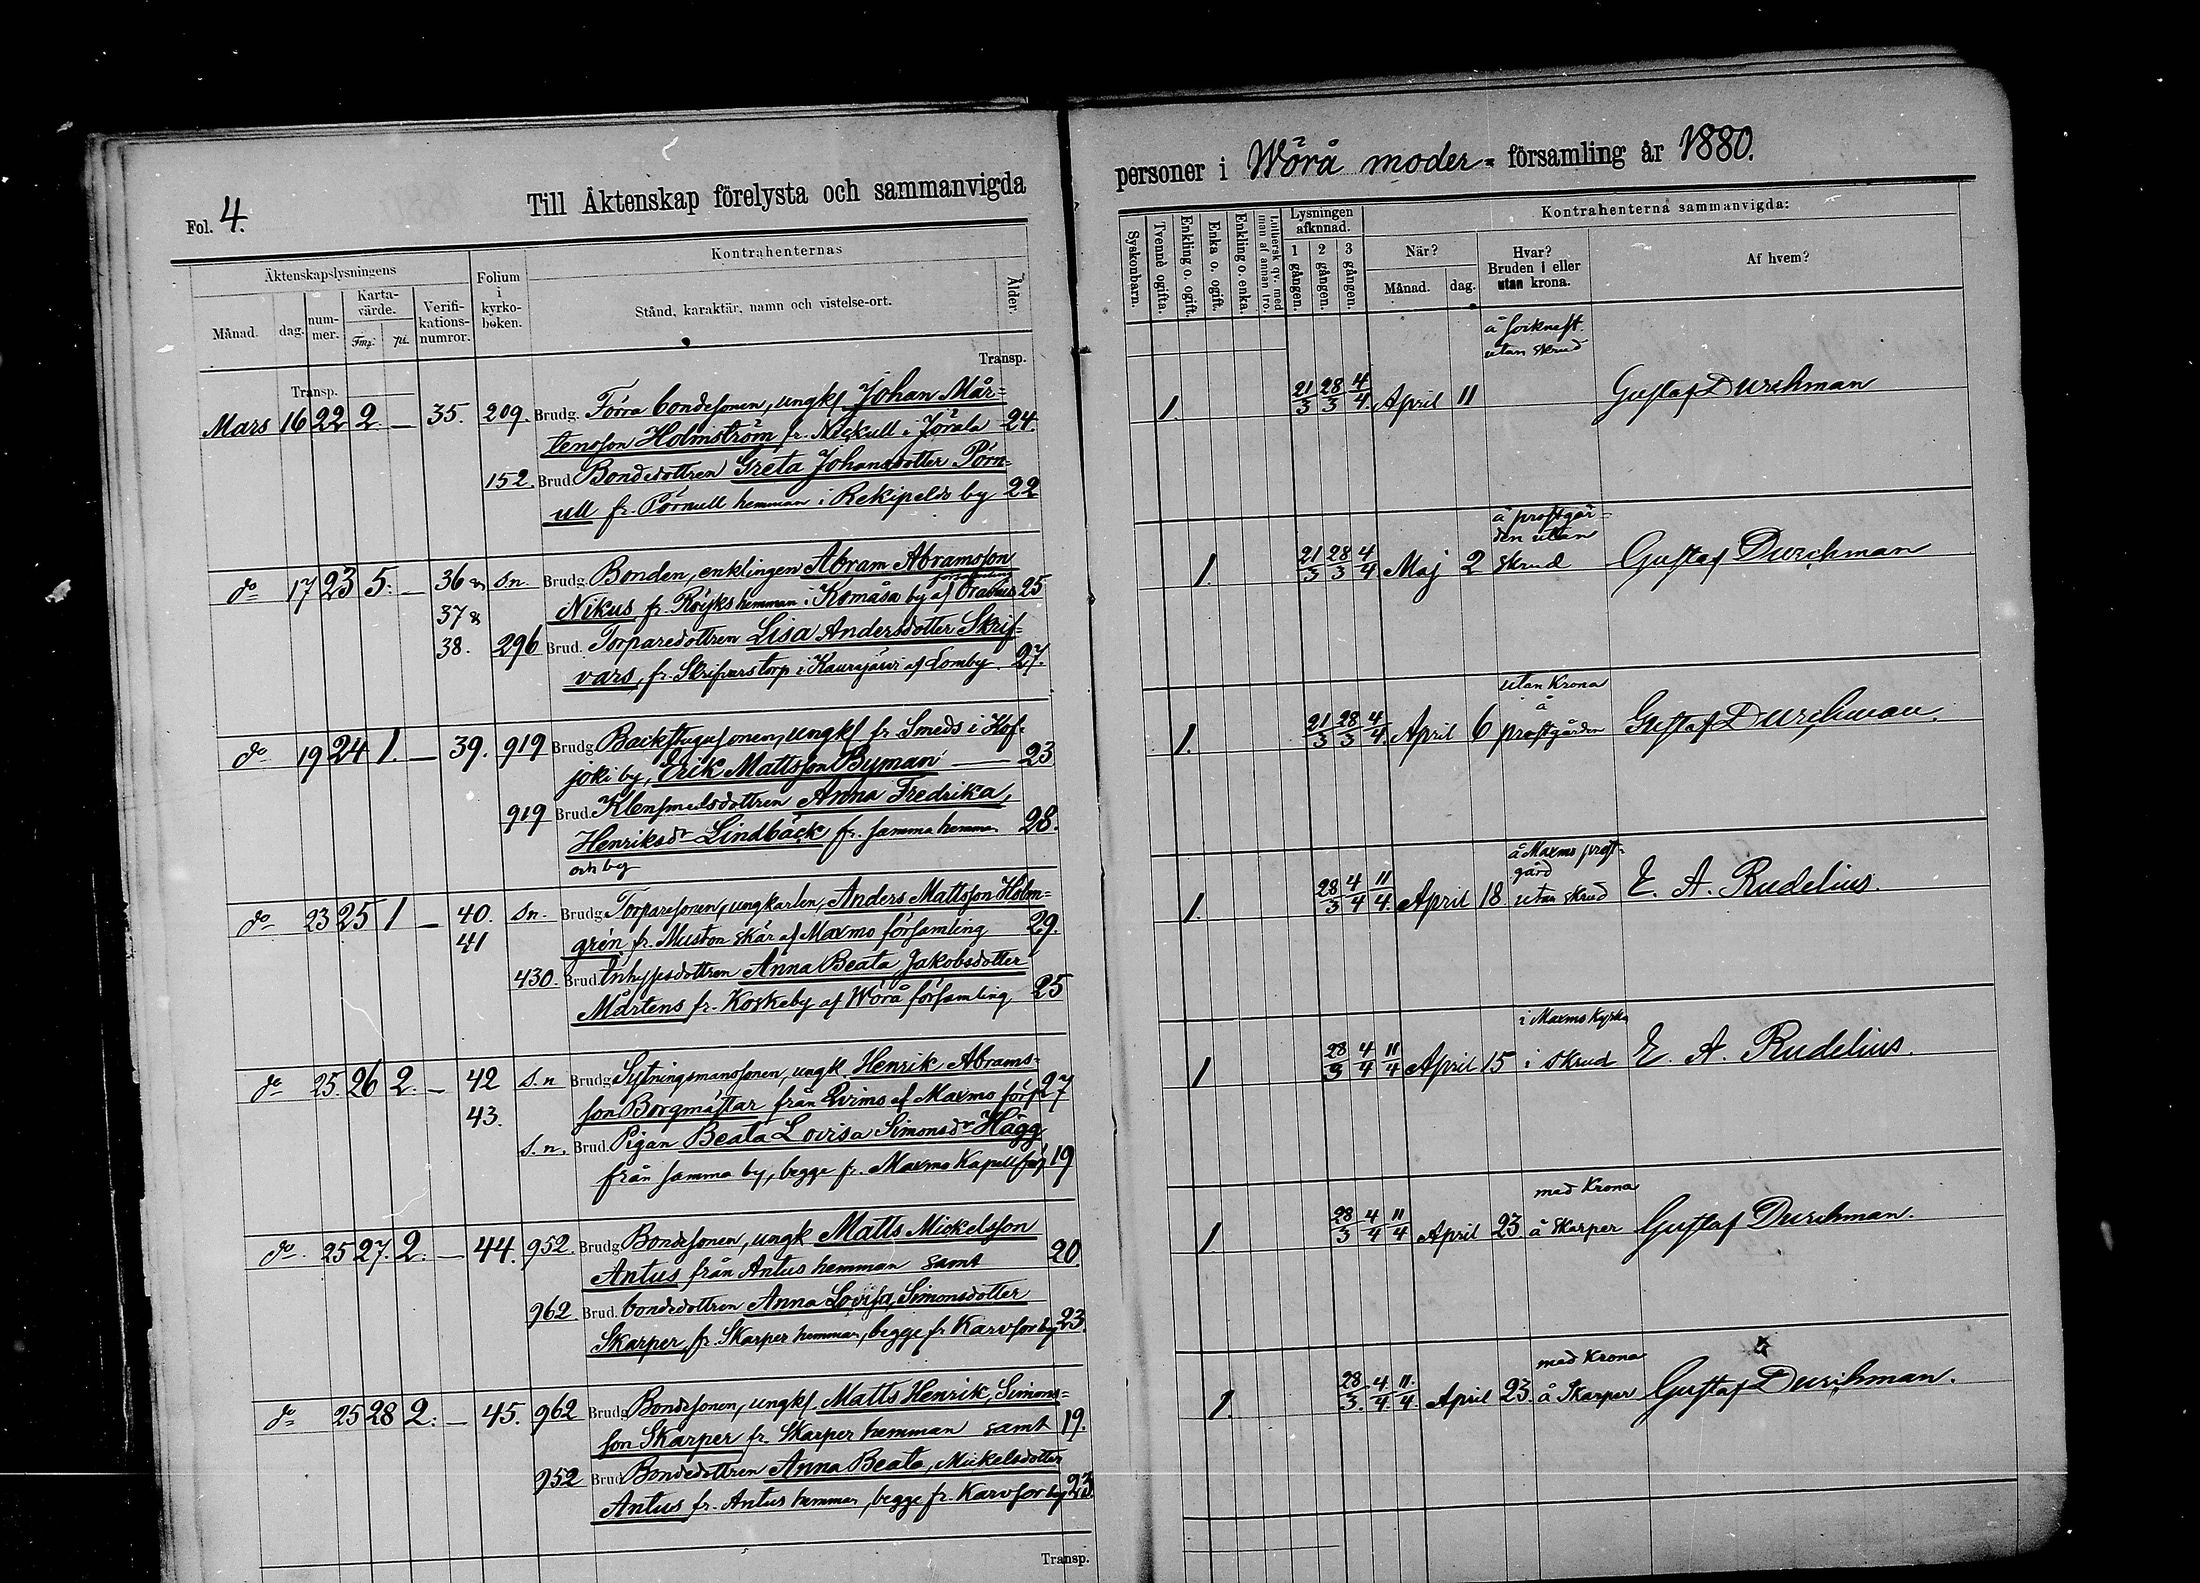 Fol. 4.
Till Äktenskap förelysta och sammanvigda
Äktenskapslysningens
Folium i kyrkoboken.
Kontrahenternas
Månad.
dag.
nummer.
Kartavärde.
Fmg: pi.
Verifikationsnumror.
Stånd, karaktär, namn och vistelse-ort.
Ålder.
Transp.
Transp.
Mars 16 22 2. — 35. 209. Brudg. Förra bondesonen, ungk. Johan Mår=
tensson Holmström fr. Nickull i Jörala 24.
152. Brud. Bondedottren Greta Johansdotter Pörn=
ull fr. Pörnull hemman i Rekipeldo by 22
do 17 23 5. — 36 & Sn. Brudg. Bonden, enklingen Abram Abramsson
37 & Nikus fr. hemman i Komåsa by af Oravais 25
38. 296 Brud. Torparedottren Lisa Andersdotter Skrif=
vars, fr. Skrifvars torp i Kaurajärvi af Lomby. 27.
do 19 24 1. — 39. 919 Brudg. Backstugusonen, ungk. fr. Smeds i Kof=
joki by, Erik Mattsson Byman — 23
919 Brud. Klensmedsdottren Anna Fredrika,
Henriksdr Lindbäck fr. samma hemman 28.
och by
do 23 25 1 — 40. Sn. Brudg. Torparesonen, ungkarlen, Anders Mattsson Holm=
41 grén fr. Muston skär af Maxmo församling 29.
430. Brud. Inhysesdottren Anna Beata Jakobsdotter
Mårtens fr. Koskeby af Wörå församling 25
do 25. 26 2. — 42 S.n. Brudg. Sytningsmanssonen, ungk. Henrik Abrams=
43. son Borgmästar från Qvims af Maxmo förs. 27
S.n. Brud. Pigan Beata Lovisa Simonsdr Hägg
från samma by, begge fr. Maxmo Kapellförs. 19
do 25 27. 2. — 44. 952. Brudg. Bondesonen, ungk Matts Mickelsson
Antus från Antus hemman samt 20.
962. Brud. bondedottren Anna Lovisa, Simonsdotter
Skarper, fr. Skarper hemman, begge fr Karvsor by 23.
do 25 28 2. — 45. 962 Brudg. Bondesonen, ungk. Matts Henrik, Simons=
son Skarper fr. Skarper hemman samt 19.
952 Brud Bondedottren Anna Beata, Mickelsdotter
Antus fr. Antus hemman, begge fr. Karvsor by 23
Transp.
personer i Wörå moder= församling år 1880.
Syskonbarn.
Tvenne ogifta.
Enkling o. ogift.
Enka o. ogift.
Enkling o. enka.
Luthersk qv. med man af annan tro.
Lysningen afkunnad.
1 gången.
2 gången.
3 gången.
Kontrahenterna sammanvigda:
När?
Månad. dag.
Hvar? Bruden i eller utan krona.
Af hvem?
utan skrud
1. 21/3 28/3 4/4. April 11 Gustaf Durchman
å prostgår=
den utan
1. 21/3 28/3 4/4 Maj 2 skrud Gustaf Durchman
utan Krona
å
1. 21/3 28/3 4/4. April 6 prostgården Gustaf Durchman.
å Maxmo prost=
gård
1. 28/3 4/4 11/4. April 18 utan skrud E. A. Rudelius.
i Maxmo Kyrka
1 28/3 4/4 11/4 April 15 i skrud E. A. Rudelius.
med Krona
1 28/3 4/4 11/4 April 23 å Skarper Gustaf Durchman.
med Krona
1. 28/3. 4/4. 11/4. April 23. å Skarper Gustaf Durchman.